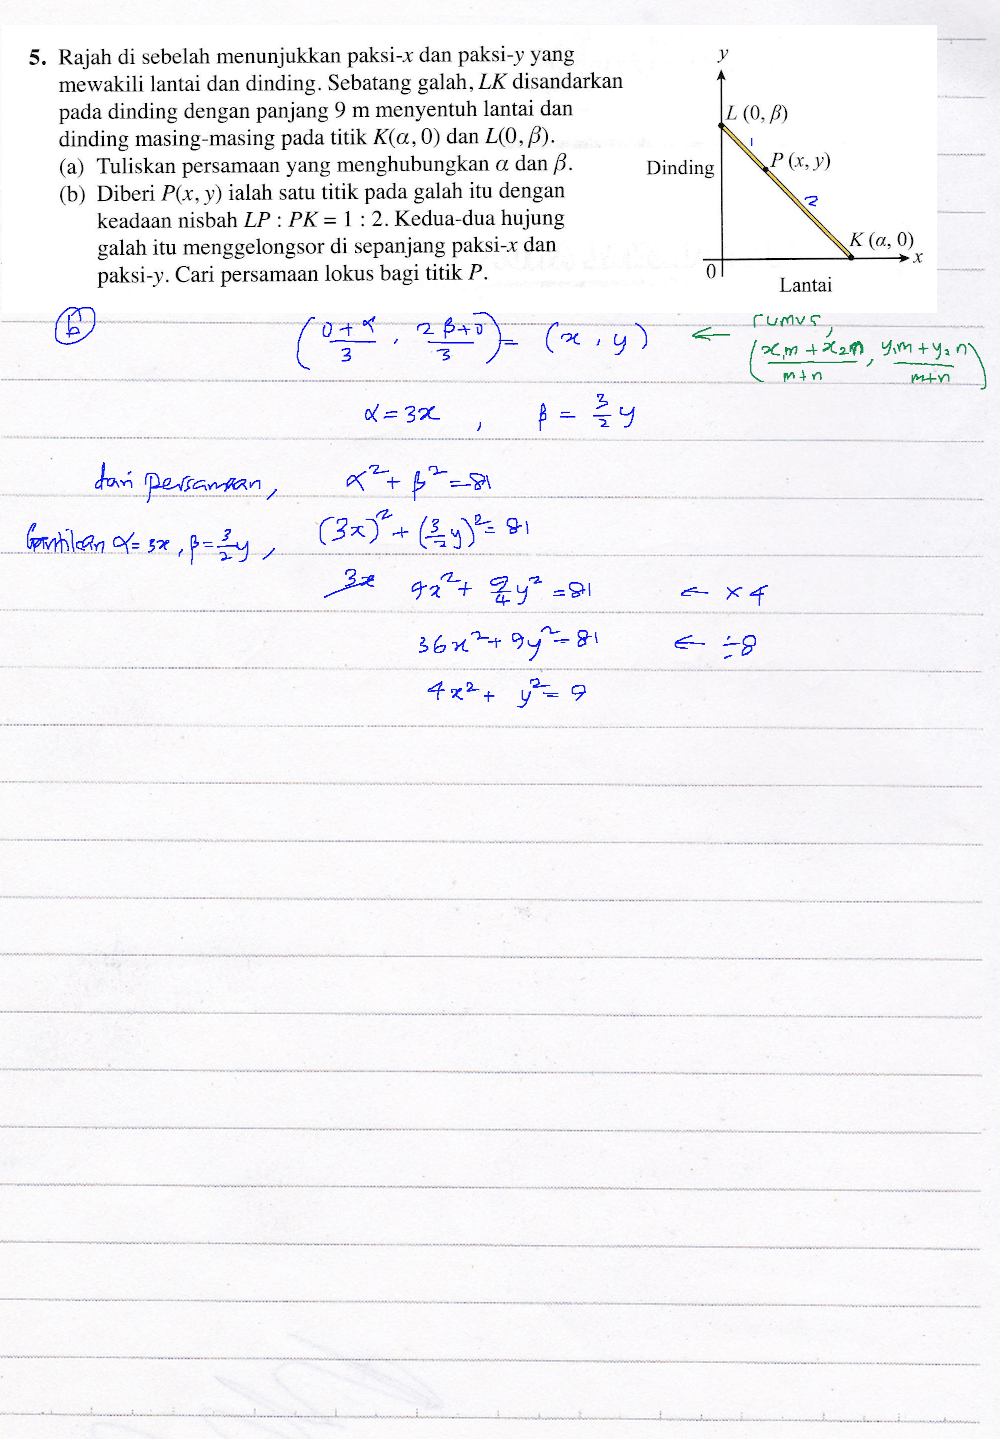 5. Rajah di sebelah menunjukkan paksi-x dan paksi-y yang
mewakili lantai dan dinding. Sebatang galah, LK disandarkan
pada dinding dengan panjang 9 m menyentuh lantai dan
dinding masing-masing pada titik K(α, 0) dan L(0, β).
(a) Tuliskan persamaan yang menghubungkan α dan β.
(b) Diberi P(x, y) ialah satu titik pada galah itu dengan
keadaan nisbah LP : PK = 1 : 2. Kedua-dua hujung
galah itu menggelongsor di sepanjang paksi-x dan
paksi-y. Cari persamaan lokus bagi titik P.
y
L (0, β)
1
Dinding
P (x, y)
2
K (α, 0)
x
0
Lantai
b
((0+α)/3, (2β+0)/3) = (x, y) ← rumus,
((x₁m + x₂n)/(m+n), (y₁m + y₂n)/(m+n))
α = 3x , β = 3/2 y
dari persamaan, α² + β² = 81
Gantikan α = 3x, β = 3/2 y, (3x)² + (3/2 y)² = 81
3x 9x² + 9/4 y² = 81 ← × 4
36x² + 9y² = 81 ← ÷8
4x² + y² = 9